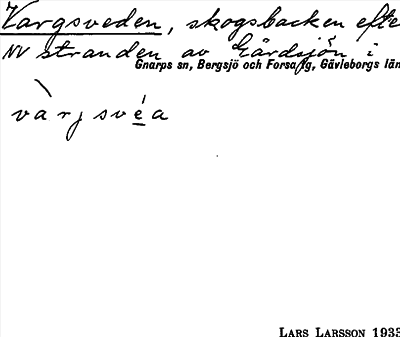 Vargsveden, skogsbacken efte
NV stranden av Gårdsjön i
Gnarps sn, Bergsjö och Forsa tg, Gävleborgs län
vàrj svéa
LARS LARSSON 1933